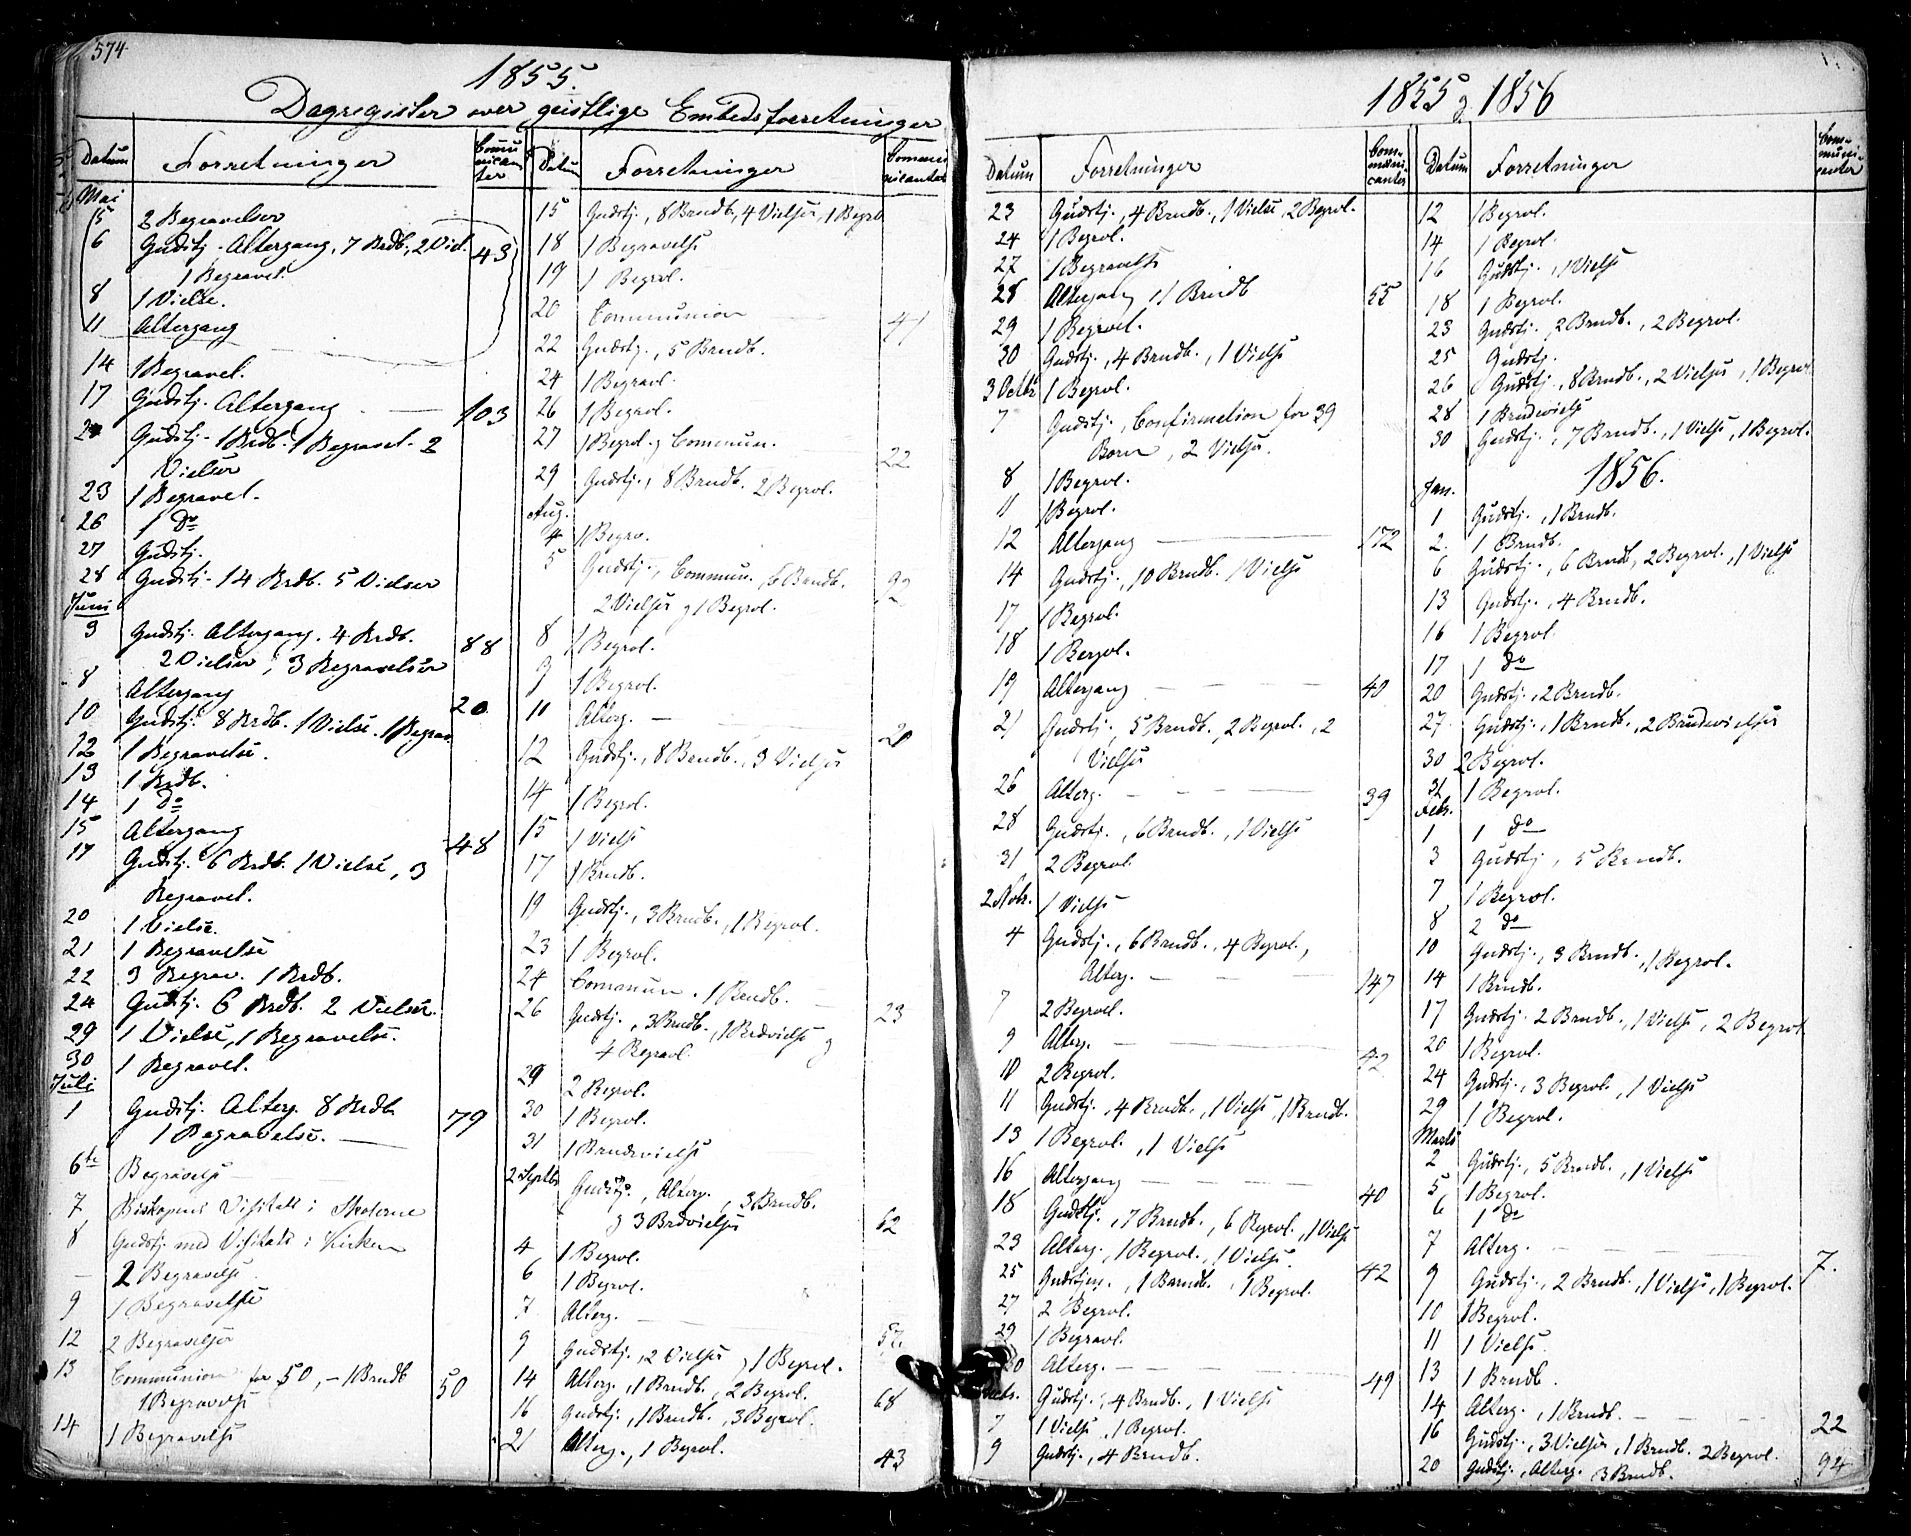 574
1855.
Dagregister over geistlige Embedsforretninger
Datum Forretninger Communicanter
Mai
5 2 Begravelser
6 Gudstj. Altergang, 7 Brdb, 2 Viel. 43
1 Begravel.
8 1 Vielse.
11 Altergang
14 1 Begravel.
17 Gudstj. Altergang 103
Gudstj. 1 Brdb. 1 Begravel. 2
Vielser
23 1 Begravel.
26 1 Do
27 Gudstj.
28 Gudstj. 14 Brdb. 5 Vielser
Juni
3 Gudstj. Altergang. 4 Brdb. 88
2 Vielser, 3 Begravelser
8 Altergang 20
10 Gudstj. 8 Brdb. 1 Vielse. 1 Begrav.
12 1 Begravelse.
13 1 Brdb.
14 1 Do
15 Altergang 48
17 Gudstj. 6 Brdb. 1 Vielse, 3
Begravel.
20 1 Vielse.
21 1 Begravelse
22 3 Begrav. 1 Brdb.
24 Gudstj. 6 Brdb. 2 Vielser.
29 1 Vielse, 1 Begravelse.
30 1 Begravel.
Juli
1 Gudstj. Alterg. 8 Brdb 79
1 Begravelse.
6te Begravelse
7 Biskopens Visitats i Skolerne
8 Gudstj. med Visitats i Kirken
- 2 Begravelse
9 1 Begravelse
12 2 Begravelser
13 Communion for 50, - 1 Brndb 50
1 Begravelse
14 1 Begravelse
Datum Forretninger Communicanter
15 Gudstj., 8 Brndb, 4 Vielser, 1 Begrl
18 1 Begravelse
19 1 Begrvl.
20 Communion 41
22 Gudstj., 5 Brndb.
24 1 Begravl.
26 1 Begrvl.
27 1 Begrvl. og Commun. 22
29 Gudstj., 8 Brndb. 2 Begrvl.
Aug.
4 1 Begrv.
5 Gudstj., Commun. 6 Brndb. 92
2 Vielser og 1 Begrvl.
8 1 Begrvl.
9 1 Begrvl.
11 Alterg. 20
12 Gudstj., 8 Brndb., 3 Vielser
14 1 Begrvl.
15 1 Vielse
17 1 Brndb.
19 Gudstj., 3 Brndb., 1 Begrvl.
23 1 Begrvl.
24 Commun. 1 Brndb. 23
26 Gudstj., 3 Brndb., 1 Brdvielse og
4 Begravl.
29 2 Begrvl.
30 1 Begrvl.
31 1 Brudevielse
2 Septbr Gudstj., Alterg., 3 Brndb. 62
og 3 Brdvielser
4 1 Begrvl.
6 1 Begrvl.
7 Alterg. 52
9 Gudstj., 2 Vielser, 1 Begrvl.
14 Alterg., 1 Brndb., 2 Begrvl. 68
16 Gudstj., 1 Brndb., 3 Begrvl.
21 Alterg., 1 Begrvl. 43
1855 og 1856
Datum Forretninger Communicanter
23 Gudstj., 4 Brndb., 1 Vielse, 2 Begrvl.
24 1 Begrvl.
27 1 Begravelse
28 Altergang, 1 Brndb 55
29 1 Begravl.
30 Gudstj., 4 Brndb., 1 Vielse
3 Octbr 1 Begrvl.
7 Gudstj., Confirmation for 39
Børn, 2 Vielser.
8 1 Begrvl.
11 1 Begrvl.
12 Altergang 172
14 Gudstj., 10 Brndb. 1 Vielse
17 1 Begrvl.
18 1 Begrvl.
19 Altergang 40
21 Gudstj., 5 Brndb., 2 Begrvl., 2
Vielser
26 Alterg. 39
28 Gudstj., 6 Brndb., 1 Vielse
31 2 Begrvl.
2 Nobr. 1 Vielse
4 Gudstj., 6 Brndb., 4 Begrvl.,
Alterg. 147
7 2 Begravl.
9 Alterg. 42
10 2 Begrvl.
11 Gudstj., 4 Brndb., 1 Vielse, 1 Brndb.
13 1 Begrvl., 1 Vielse
16 Altergang 40
18 Gudstj., 7 Brndb., 6 Begrvl., 1 Vielse
23 Alterg., 1 Begrvl., 1 Vielse. 42
25 Gudstjen., 1 Barndb., 1 Begrvl.
27 2 Begrvl.
29 1 Begravl.
30 Alterg. 49
Gudstj., 4 Brndb., 1 Vielse
7 1 Vielse, 1 Begrvl.
9 Gudstj., 4 Brndb.
Datum Forretninger Communicanter
12 1 Begrvl.
14 1 Begrvl.
16 Gudstj., 1 Vielse
18 1 Begrvl.
23 Gudstj., 2 Brndb., 2 Begrvl.
25 Gudstj.
26 Gudstj., 8 Brndb., 2 Vielser, 1 Begrvl
28 1 Brudevielse
30 Gudstj., 7 Brndb., 1 Vielse, 1 Begrvl.
1856.
Jan.
1 Gudstj., 1 Brndb.
2. 1 Brndb.
6 Gudstj., 6 Brndb, 2 Begrvl., 1 Vielse
13 Gudstj., 4 Brndb.
16 1 Begrvl.
17 1 Do
20 Gudstj., 2 Brndb.
27 Gudstj., 1 Brndb., 2 Brudevielser
30 2 Begrvl.
31 1 Begrvl.
Febr.
1 1 Do
3 Gudstj, 5 Brndb.
7 1 Begrvl.
8 2 Do
10 Gudstj., 3 Brndb., 1 Begrvl.
14 1 Brndb.
17 Gudstj. 2 Brndb., 1 Vielse, 2 Begrvl
20 1 Begrvl.
24 Gudstj., 3 Begrvl., 1 Vielse
29 1 Begrvl.
Marts
2 Gudstj., 5 Brndb., 1 Vielse
5 1 Begrvl.
6 1 Do
7 Alterg. 7.
9 Gudstj., 2 Brndb., 1 Vielse, 1 Begrvl.
10 1 Begrvl.
11 1 Vielse
13 1 Brndb.
14 Alterg., 1 Brndb. 22
16 Gudstj., 3 Vielser, 1 Brndb. 2 Begrvl.
20 Gudstj., Alterg. 3 Brndb. 94